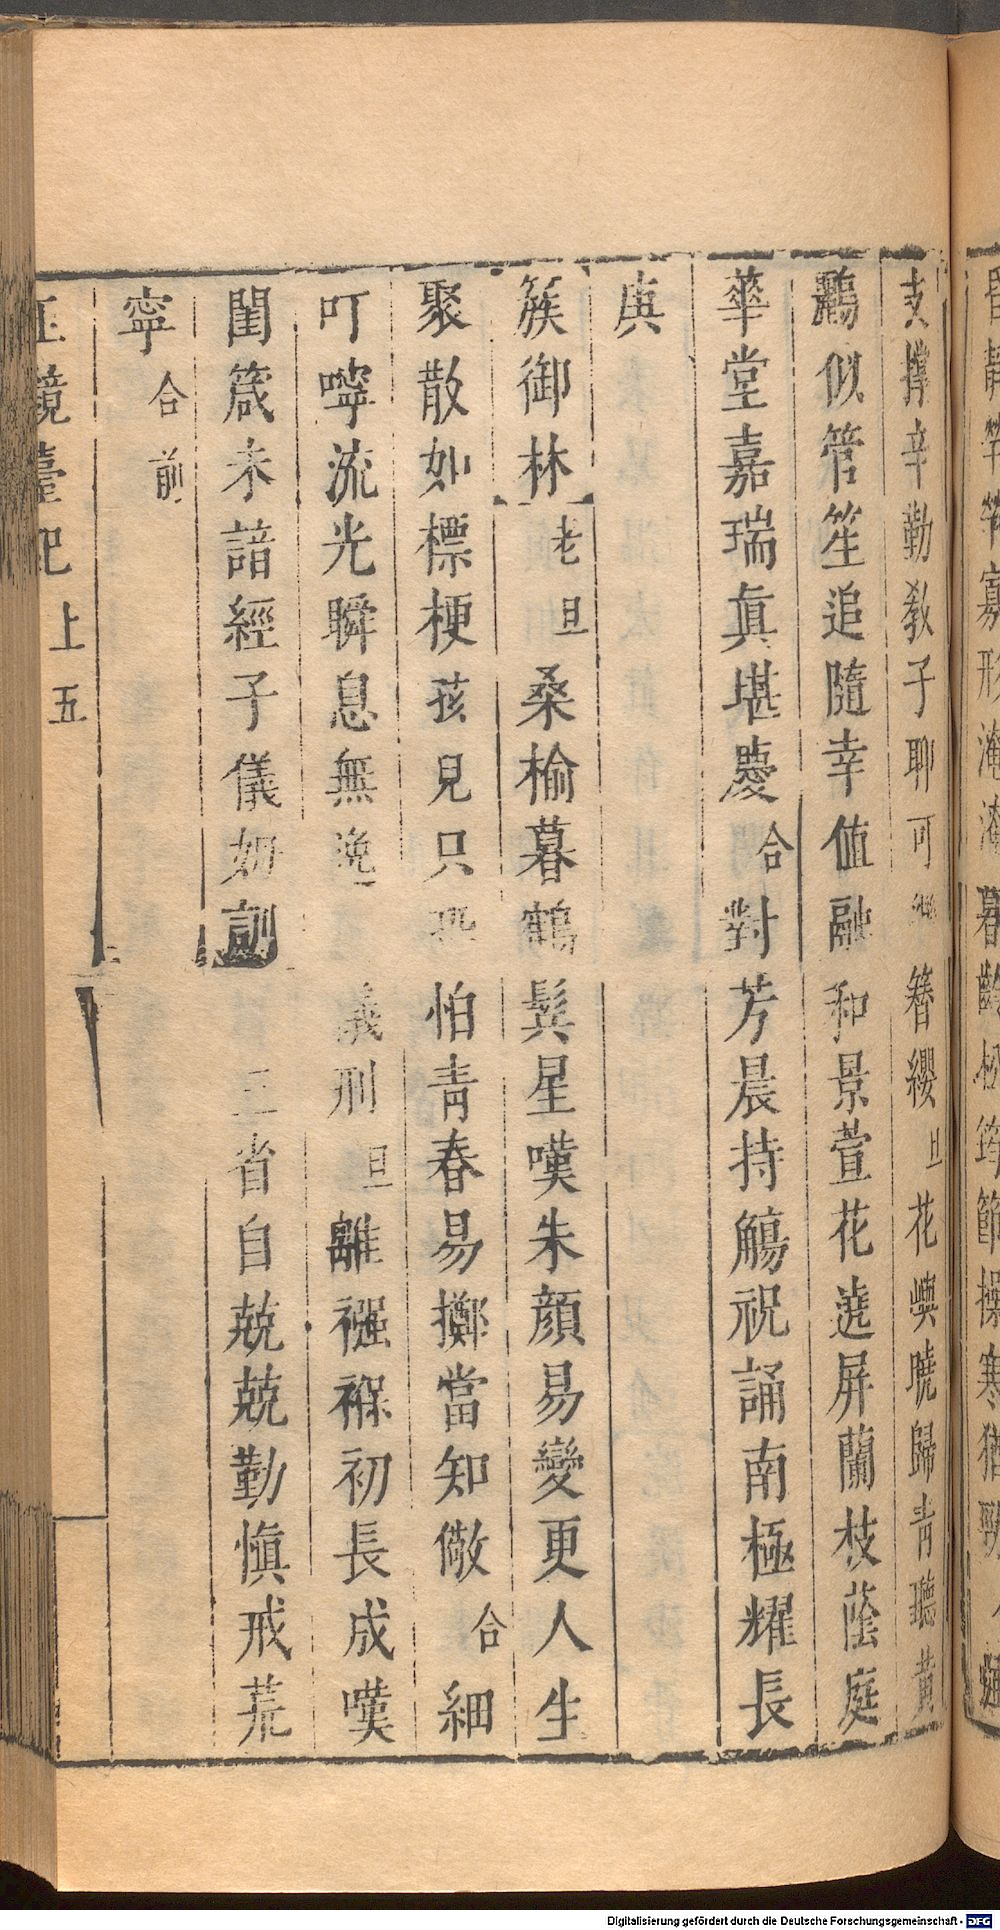 支撐辛勤教子聊可 簪纓旦花嶼曉歸青聽黃
鸝似管笙追隨幸值融和景萱花遶屏蘭枝蔭庭
華堂嘉瑞眞堪慶合對芳晨持觴祝誦南極耀長
庚
簇御林老旦桑榆暮鶴鬂星嘆朱顏易變更人生
聚散如標梗孩兒只恐怕青春易擲當知儆合細
叮嚀流光瞬息無逸 義刑旦離襁褓初長成嘆
閨箴未諳經子儀姆訓 三省自兢兢勤愼戒荒
寧合前
玉鏡臺記上五
Digitalisierung gefördert durch die Deutsche Forschungsgemeinschaft - DFG